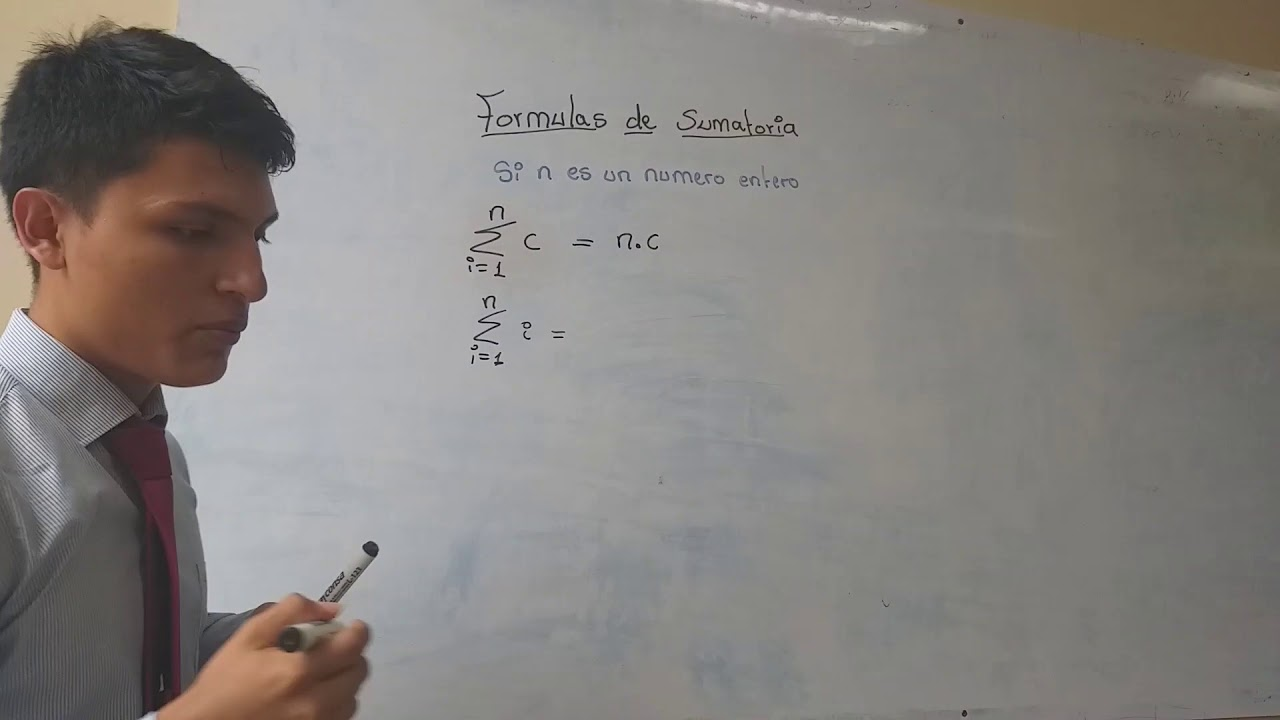 Formulas de Sumatoria
Si n es un numero entero
n
∑ c = n.c
i=1
n
∑ i =
i=1